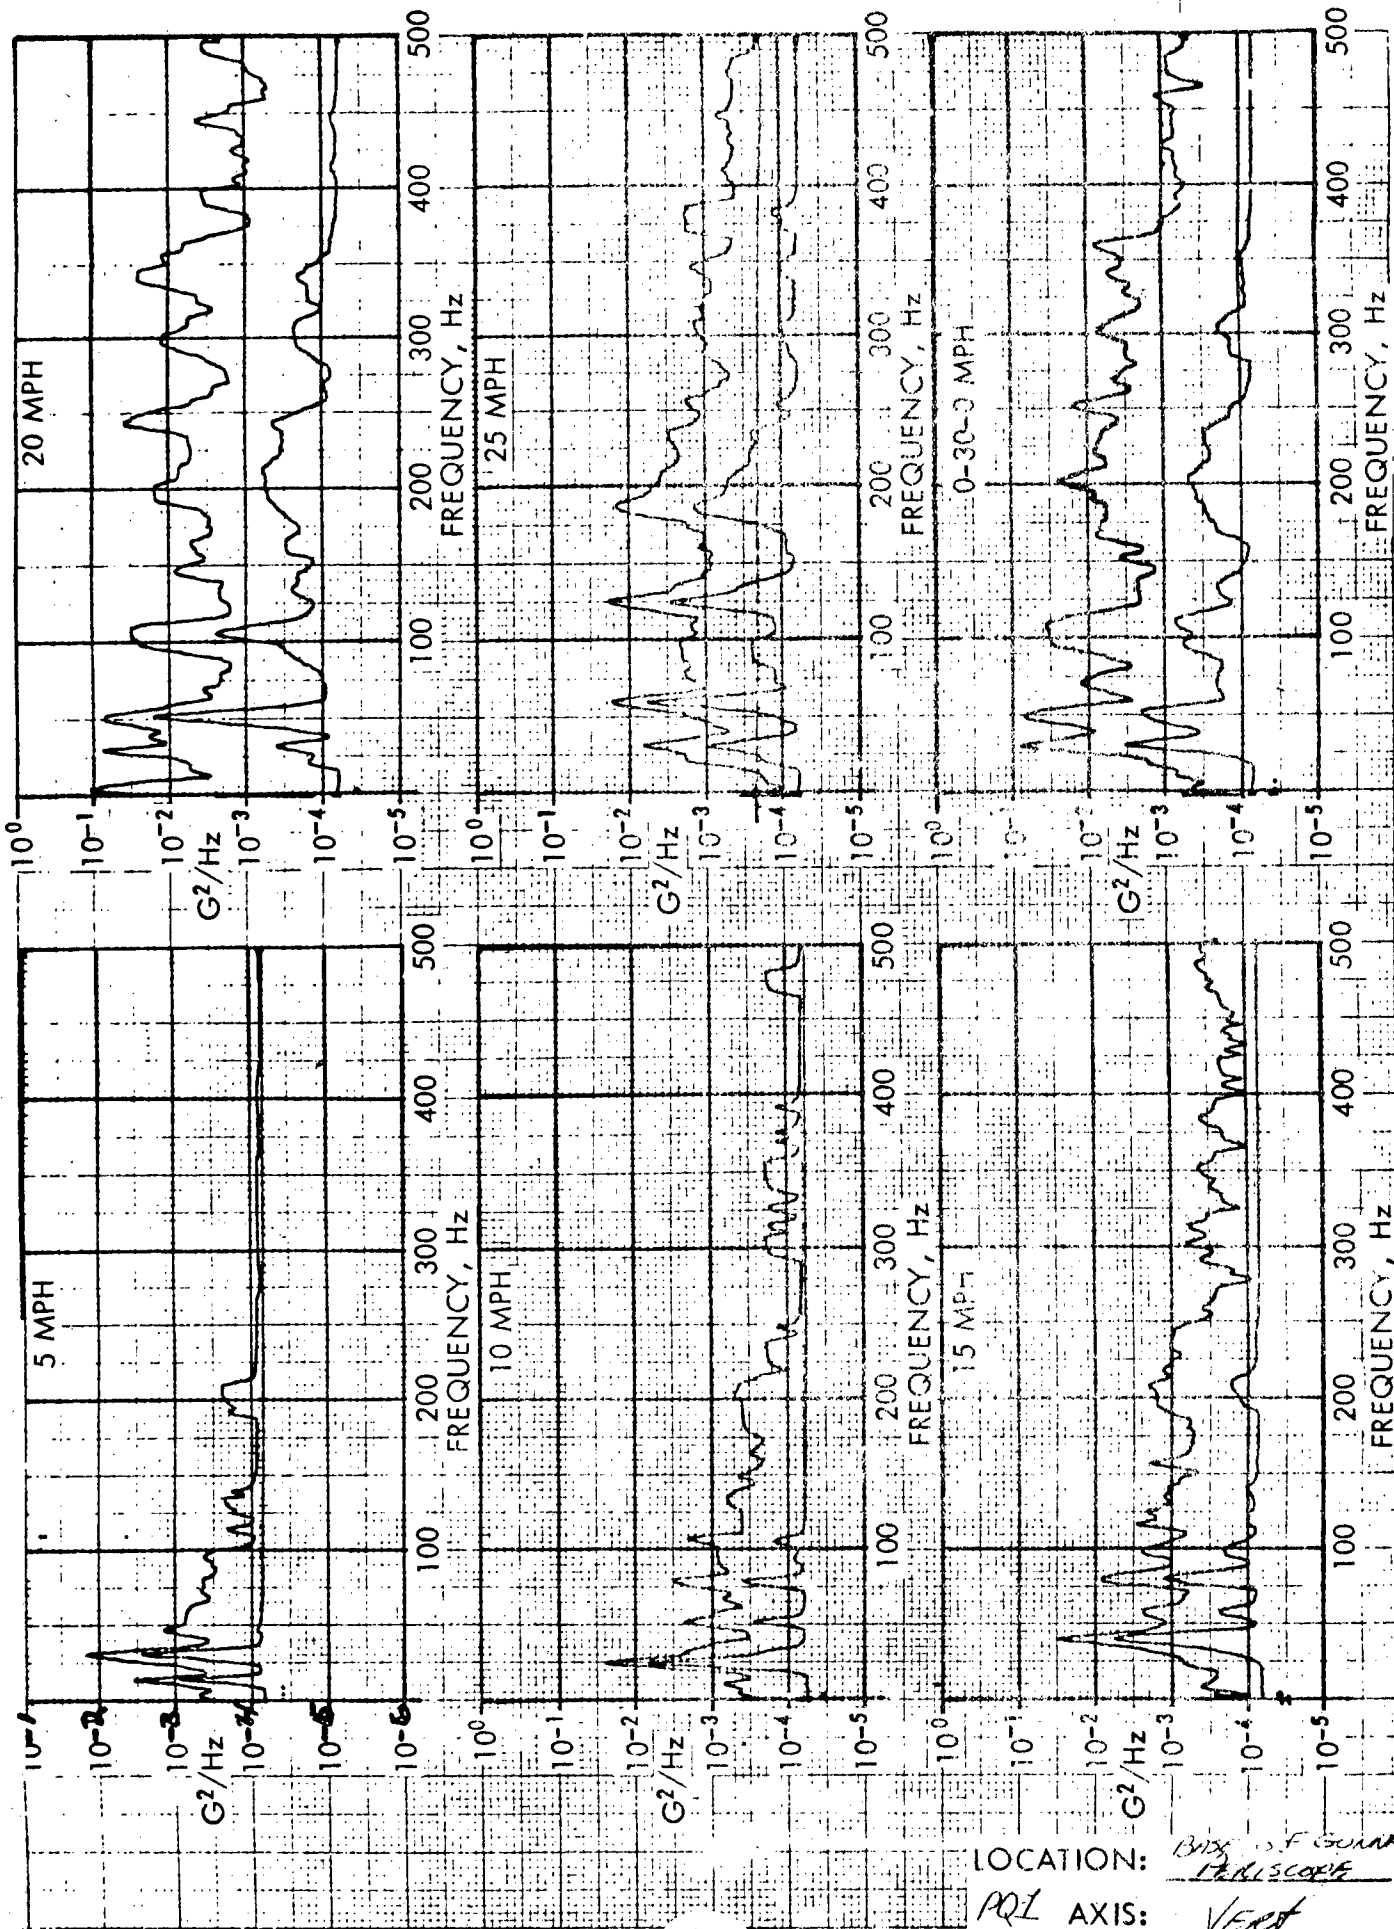 5 MPH
10-1
10-2
10-3
10-4
10-5
10-6
G²/Hz
100
200
300
400
500
FREQUENCY, Hz
20 MPH
10⁰
10⁻¹
10⁻²
10⁻³
10⁻⁴
10⁻⁵
G²/Hz
100
200
300
400
500
FREQUENCY, Hz
10 MPH
10⁰
10⁻¹
10⁻²
10⁻³
10⁻⁴
10⁻⁵
G²/Hz
100
200
300
400
500
FREQUENCY, Hz
25 MPH
10⁰
10⁻¹
10⁻²
10⁻³
10⁻⁴
10⁻⁵
G²/Hz
100
200
300
400
500
FREQUENCY, Hz
15 MPH
10⁰
10⁻¹
10⁻²
10⁻³
10⁻⁴
10⁻⁵
G²/Hz
100
200
300
400
500
FREQUENCY, Hz
0-30-0 MPH
10⁰
10⁻¹
10⁻²
10⁻³
10⁻⁴
10⁻⁵
G²/Hz
100
200
300
400
500
FREQUENCY, Hz
LOCATION: BASE OF
PERISCOPE
PQ1 AXIS: VERT